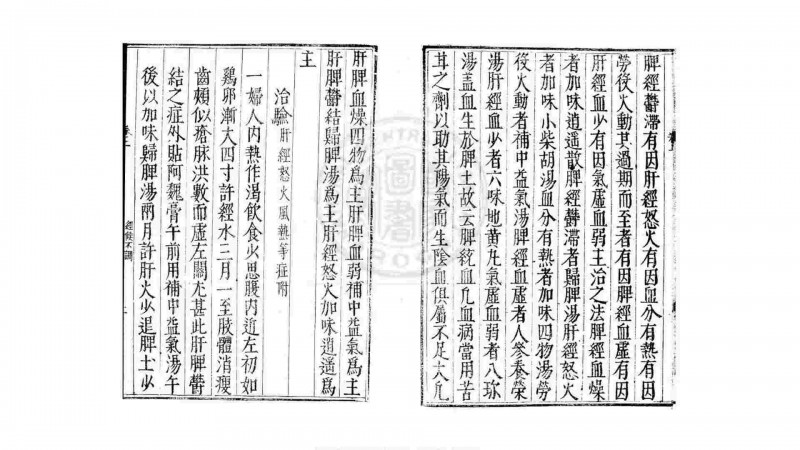 脾經鬱滯有因肝經怒火有因血分有熱有因
勞役火動其過期而至者有因脾經血虛有因
肝經血少有因氣虛血弱主治之法脾經血燥
者加味逍遥散脾經鬱滯者歸脾湯肝經怒火
者加味小柴胡湯血分有熱者加味四物湯勞
役火動者補中益氣湯脾經血虛者人參養榮
湯肝經血少者六味地黄丸氣虛血弱者八珍
湯盖血生於脾土故云脾統血凡血病當用苦
甘之劑以助其陽氣而生陰血俱屬不足大凡
肝脾血燥四物爲主肝脾血弱補中益氣爲主
肝脾鬱結歸脾湯爲主肝經怒火加味逍遥爲
主
治驗肝經怒火風熱等症附
一婦人内熱作渴飲食少思腹内近左初如
鷄卵漸大四寸許經水三月一至肢體消瘦
齒頰似瘡脉洪數而虛左關尤甚此肝脾鬱
結之症外貼阿魏膏午前用補中益氣湯午
後以加味歸脾湯兩月許肝火少退脾土少
卷二
經候不調